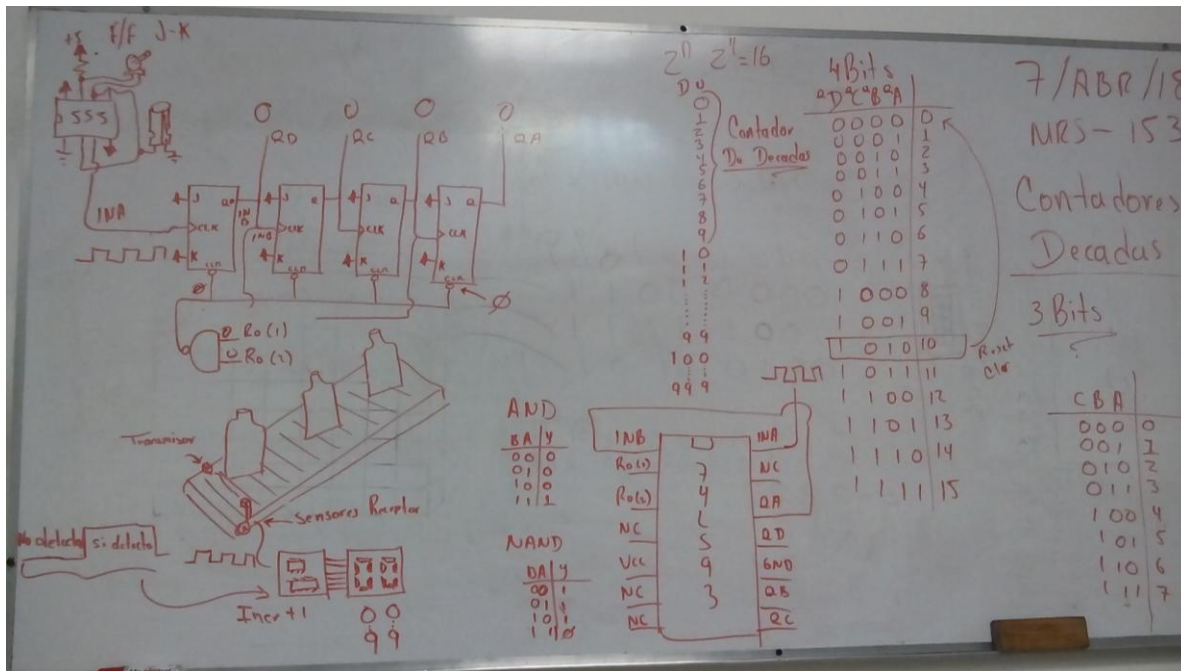 +5 F/F J-K
555
0 0 0 0
QD QC QB QA
INA
J CLK K CLR
J Q INB CLK K CLR
J Q CLK K CLR
J Q CLK K CLR
Ro(1)
Ro(2)
Ø
Transmisor
Sensores Receptor
No detecto si detecto
Incr +1
0 0
9 9
2ⁿ 2⁴=16
D U
0
1
2
3
4
5
6
7
8
9
1 0
1 1
1 2
9 9
1 0 0
9 9 9
Contador
De Decadas
AND
BA Y
00 0
01 0
10 0
11 1
NAND
BA Y
00 1
01 1
10 1
11 Ø
INB INA
Ro(1) 7 NC
Ro(2) 4 QA
NC L QD
VCC S GND
NC 9 QB
NC 3 QC
4 Bits
QD QC QB QA
0000 0
0001 1
0010 2
0011 3
0100 4
0101 5
0110 6
0111 7
1000 8
1001 9
1010 10
1011 11
1100 12
1101 13
1110 14
1111 15
Reset
Clr
7/ABR/18
MRS-153
Contadores
Decadas
3 Bits
CBA
000 0
001 1
010 2
011 3
100 4
101 5
110 6
111 7